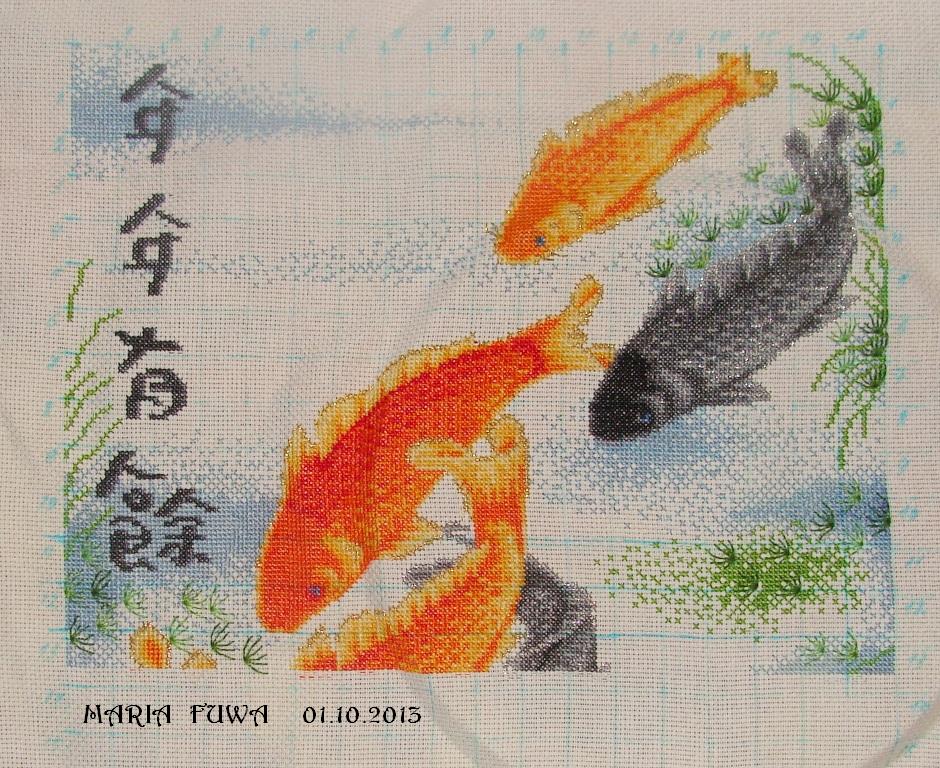 年
年
有
餘
MARIA FUWA 01.10.2013